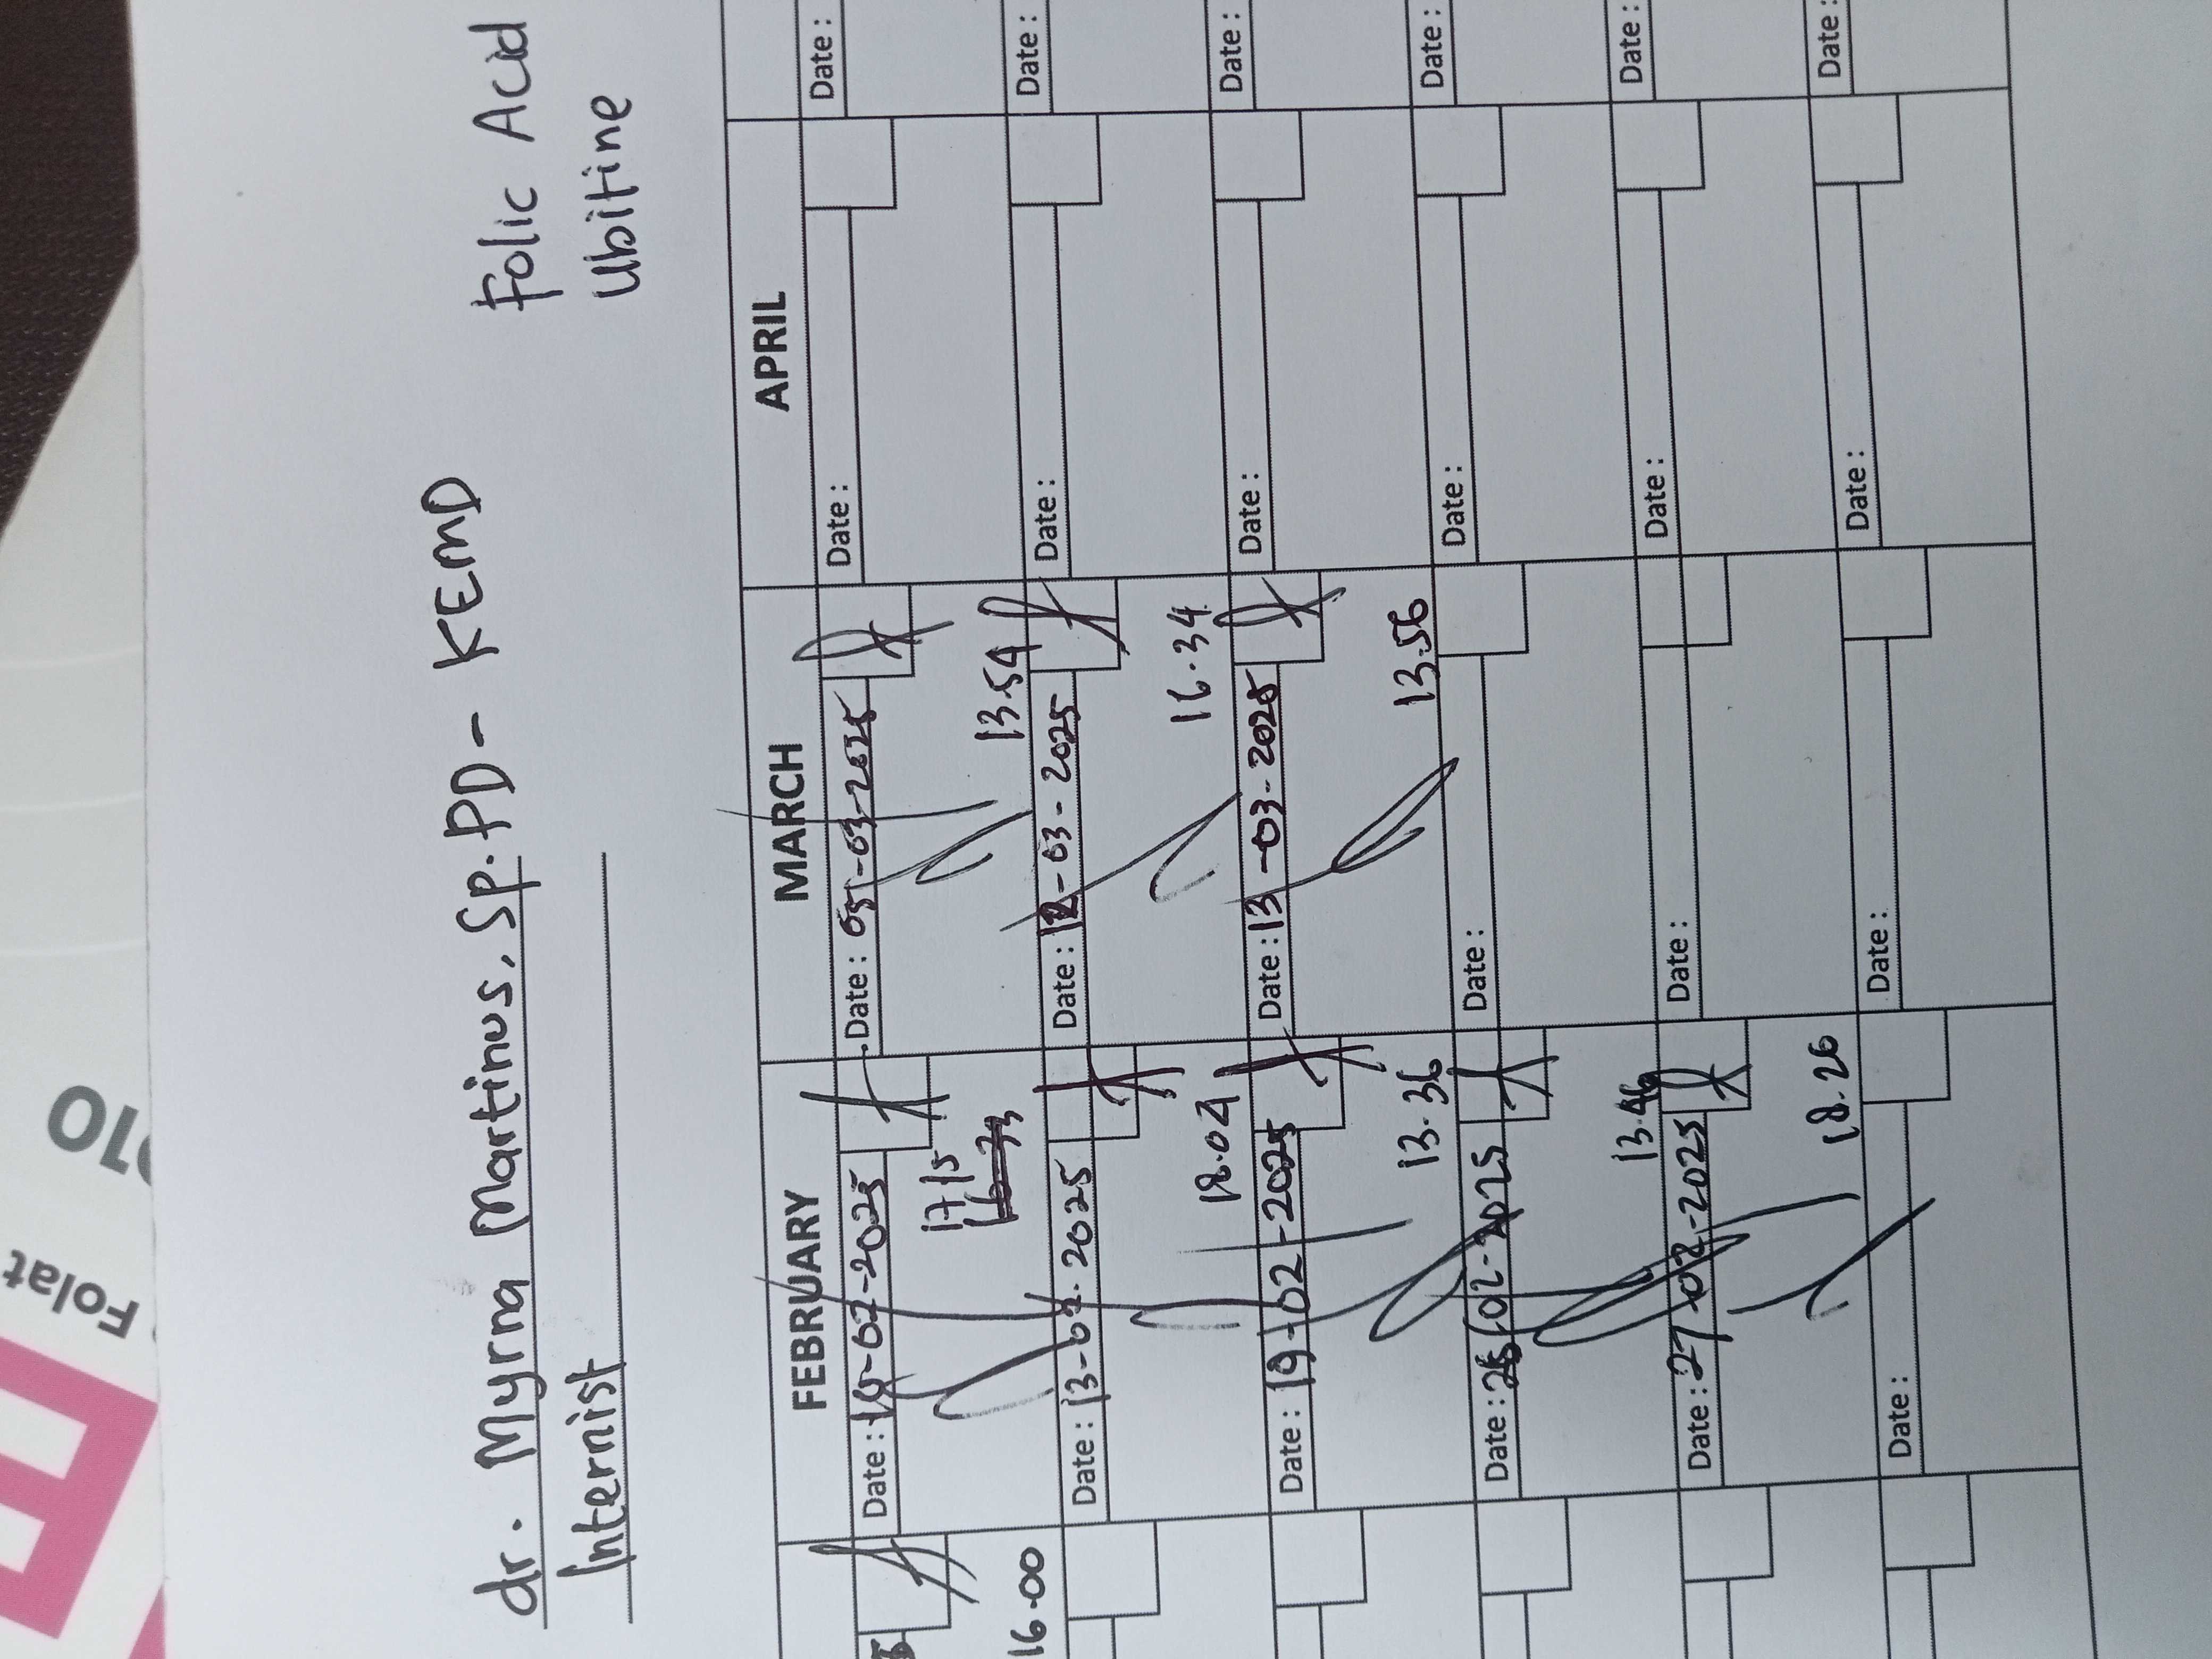 Folat
dr. Myrna Martinus, Sp.PD - KEMD
Internist
Folic Acid
Ubitine
FEBRUARY
MARCH
APRIL
16.00
Date : -02-2025
1715
Date : 05-03-2025
13.54
Date :
Date :
Date : 13-02-2025
18.04
Date : 12-03-2025
16.34
Date :
Date :
Date : 19-02-2025
13.36
Date : 13-03-2025
13.56
Date :
Date :
Date : -02-2025
13.46
Date :
Date :
Date :
Date : 27-02-2025
18.26
Date :
Date :
Date :
Date :
Date :
Date :
Date :